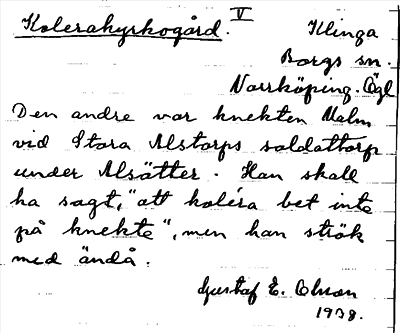 V
Kolerakyrkogård. Klinga
Borgs sn.
Norrköping. Ögl
Den andre var knekten Malm
vid Stora Alstorps soldattorp
under Alsätter. Han skall
ha sagt, "att koléra bet inte
på knekte", men han strök
med ändå.
Gustaf E. Olsson
1938.